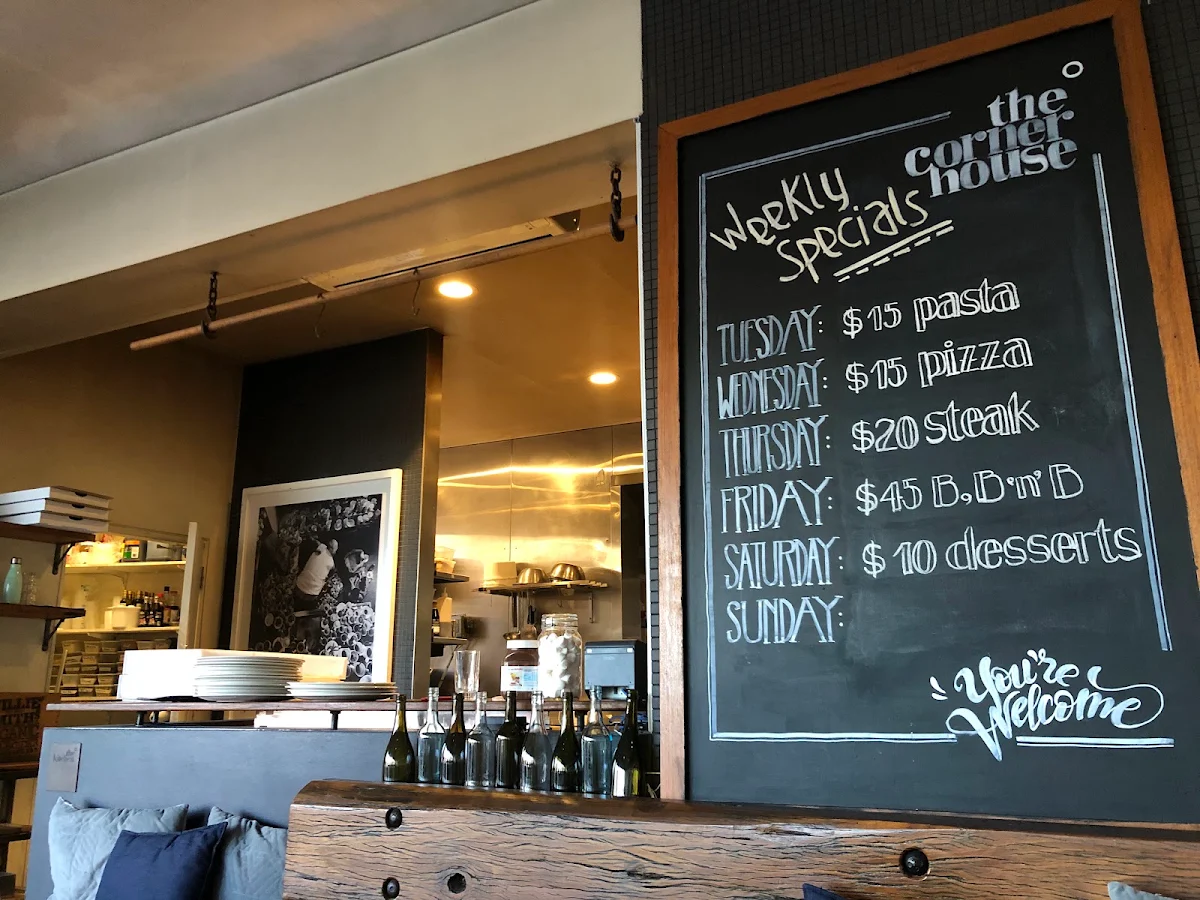 the
corner
house
Weekly
Specials
TUESDAY: $15 pasta
WEDNESDAY: $15 pizza
THURSDAY: $20 steak
FRIDAY: $45 B,B'n'B
SATURDAY: $10 desserts
SUNDAY:
You're
Welcome